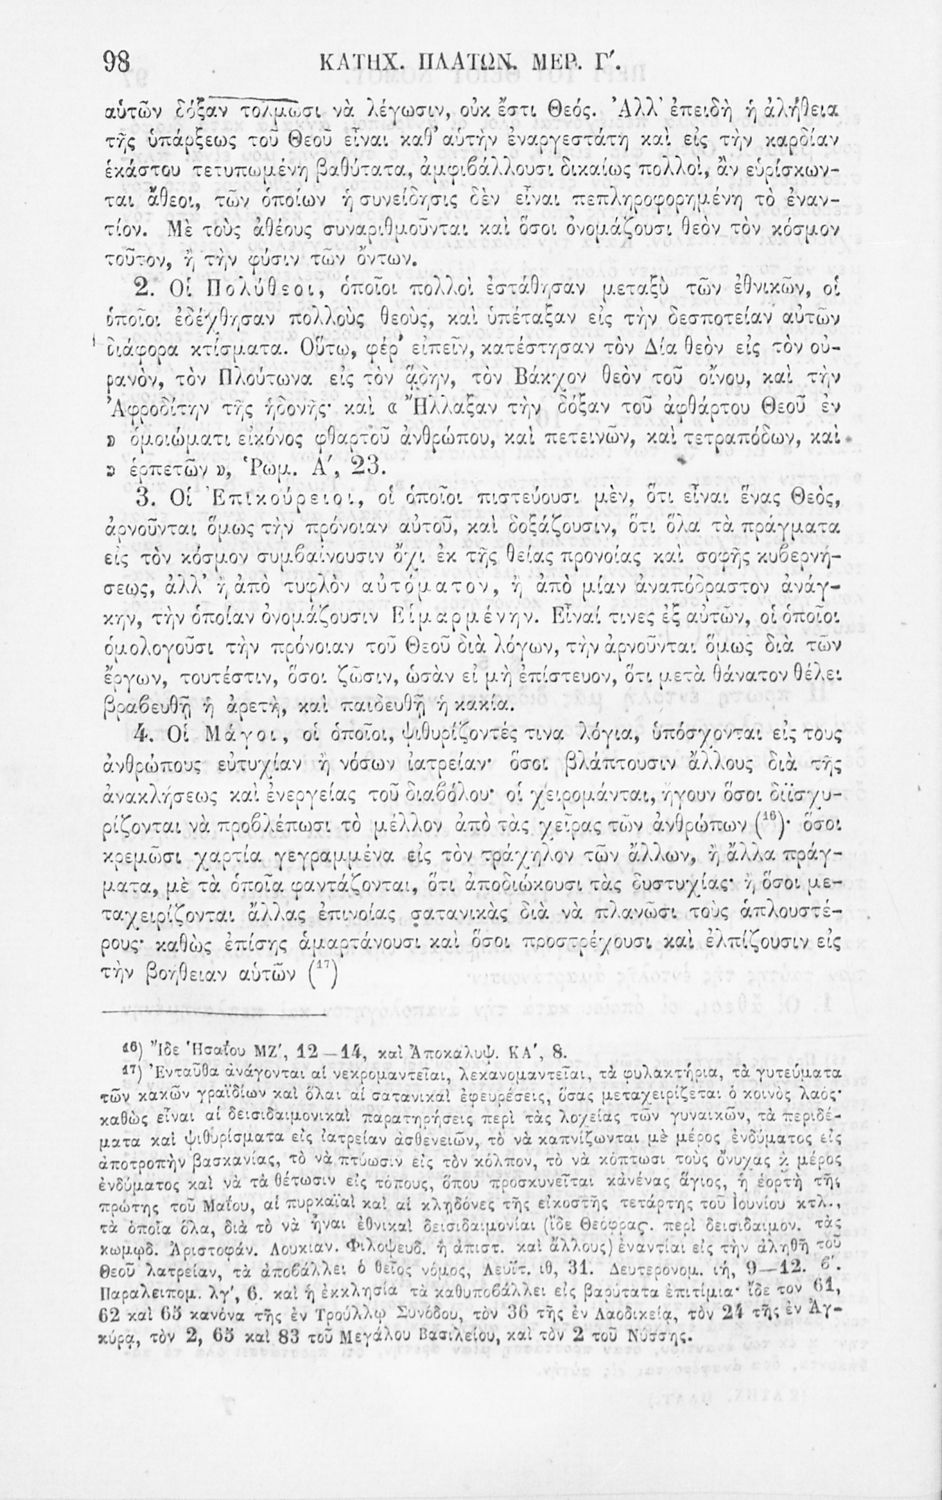 98 ΚΑΤΗΧ. ΠΛΑΤΩΝ. ΜΕΡ. Γʹ.
αὑτῶν δόξαν τολμῶσι νὰ λέγωσιν, οὐκ ἔστι Θεός. Ἀλλ' ἐπειδὴ ἡ ἀλήθεια
τῆς ὑπάρξεως τοῦ Θεοῦ εἶναι καθ' αὑτὴν ἐναργεστάτη καὶ εἰς τὴν καρδίαν
ἑκάστου τετυπωμένη βαθύτατα, ἀμφιβάλλουσι δικαίως πολλοὶ, ἂν εὑρίσκων-
ται ἄθεοι, τῶν ὁποίων ἡ συνείδησις δὲν εἶναι πεπληροφορημένη τὸ ἐναν-
τίον. Μὲ τοὺς ἀθέους συναριθμοῦνται καὶ ὅσοι ὀνομάζουσι θεὸν τὸν κόσμον
τοῦτον, ἢ τὴν φύσιν τῶν ὄντων.
2. Οἱ Πολύθεοι, ὁποῖοι πολλοὶ ἐστάθησαν μεταξὺ τῶν ἐθνικῶν, οἱ
ὁποῖοι ἐδέχθησαν πολλοὺς θεοὺς, καὶ ὑπέταξαν εἰς τὴν δεσποτείαν αὐτῶν
διάφορα κτίσματα. Οὕτω, φέρ' εἰπεῖν, κατέστησαν τὸν Δία θεὸν εἰς τὸν οὐ-
ρανὸν, τὸν Πλούτωνα εἰς τὸν ᾅδην, τὸν Βάκχον θεὸν τοῦ οἴνου, καὶ τὴν
Ἀφροδίτην τῆς ἡδονῆς· καὶ « Ἤλλαξαν τὴν δόξαν τοῦ ἀφθάρτου Θεοῦ ἐν
» ὁμοιώματι εἰκόνος φθαρτοῦ ἀνθρώπου, καὶ πετεινῶν, καὶ τετραπόδων, καὶ
» ἑρπετῶν », Ῥωμ. Αʹ, 23.
3. Οἱ Ἐπικούρειοι, οἱ ὁποῖοι πιστεύουσι μὲν, ὅτι εἶναι ἕνας Θεὸς,
ἀρνοῦνται ὅμως τὴν πρόνοιαν αὐτοῦ, καὶ δοξάζουσιν, ὅτι ὅλα τὰ πράγματα
εἰς τὸν κόσμον συμβαίνουσιν ὄχι ἐκ τῆς θείας προνοίας καὶ σοφῆς κυβερνή-
σεως, ἀλλ' ἢ ἀπὸ τυφλὸν αὐτόματον, ἢ ἀπὸ μίαν ἀναπόδραστον ἀνάγ-
κην, τὴν ὁποίαν ὀνομάζουσιν Εἱμαρμένην. Εἶναί τινες ἐξ αὐτῶν, οἱ ὁποῖοι
ὁμολογοῦσι τὴν πρόνοιαν τοῦ Θεοῦ διὰ λόγων, τὴν ἀρνοῦνται ὅμως διὰ τῶν
ἔργων, τουτέστιν, ὅσοι ζῶσιν, ὡσὰν εἰ μὴ ἐπίστευον, ὅτι μετὰ θάνατον θέλει
βραβευθῇ ἡ ἀρετὴ, καὶ παιδευθῇ ἡ κακία.
4. Οἱ Μάγοι, οἱ ὁποῖοι, ψιθυρίζοντές τινα λόγια, ὑπόσχονται εἰς τοὺς
ἀνθρώπους εὐτυχίαν ἢ νόσων ἰατρείαν· ὅσοι βλάπτουσιν ἄλλους διὰ τῆς
ἀνακλήσεως καὶ ἐνεργείας τοῦ διαβόλου· οἱ χειρομάνται, ἤγουν ὅσοι διϊσχυ-
ρίζονται νὰ προβλέπωσι τὸ μέλλον ἀπὸ τὰς χεῖρας τῶν ἀνθρώπων (16)· ὅσοι
κρεμῶσι χαρτία γεγραμμένα εἰς τὸν τράχηλον τῶν ἄλλων, ἢ ἄλλα πράγ-
ματα, μὲ τὰ ὁποῖα φαντάζονται, ὅτι ἀποδιώκουσι τὰς δυστυχίας· ἢ ὅσοι με-
ταχειρίζονται ἄλλας ἐπινοίας σατανικὰς διὰ νὰ πλανῶσι τοὺς ἁπλουστέ-
ρους· καθὼς ἐπίσης ἁμαρτάνουσι καὶ ὅσοι προστρέχουσι καὶ ἐλπίζουσιν εἰς
τὴν βοήθειαν αὐτῶν (17)
16) Ἴδε Ἡσαΐου ΜΖʹ, 12—14, καὶ Ἀποκάλυψ. ΚΑʹ, 8.
17) Ἐνταῦθα ἀνάγονται αἱ νεκρομαντεῖαι, λεκανομαντεῖαι, τὰ φυλακτήρια, τὰ γυτεύματα
τῶν κακῶν γραϊδίων καὶ ὅλαι αἱ σατανικαὶ ἐφευρέσεις, ὅσας μεταχειρίζεται ὁ κοινὸς λαός·
καθὼς εἶναι αἱ δεισιδαιμονικαὶ παρατηρήσεις περὶ τὰς λοχείας τῶν γυναικῶν, τὰ περιδέ-
ματα καὶ ψιθυρίσματα εἰς ἰατρείαν ἀσθενειῶν, τὸ νὰ καπνίζωνται μὲ μέρος ἐνδύματος εἰς
ἀποτροπὴν βασκανίας, τὸ νὰ πτύωσιν εἰς τὸν κόλπον, τὸ νὰ κόπτωσι τοὺς ὄνυχας ἢ μέρος
ἐνδύματος καὶ νὰ τὰ θέτωσιν εἰς τόπους, ὅπου προσκυνεῖται κανένας ἅγιος, ἡ ἑορτὴ τῆς
πρώτης τοῦ Μαΐου, αἱ πυρκαϊαὶ καὶ αἱ κληδόνες τῆς εἰκοστῆς τετάρτης τοῦ Ἰουνίου κτλ.,
τὰ ὁποῖα ὅλα, διὰ τὸ νὰ ἦναι ἐθνικαὶ δεισιδαιμονίαι (ἴδε Θεόφρας. περὶ δεισιδαιμον. τὰς
κωμῳδ. Ἀριστοφάν. Λουκιαν. Φιλοψευδ. ἢ ἀπιστ. καὶ ἄλλους) ἐναντίαι εἰς τὴν ἀληθῆ τοῦ
Θεοῦ λατρείαν, τὰ ἀποβάλλει ὁ θεῖος νόμος, Λευϊτ. ιθ, 31. Δευτερονομ. ιή, 9—12. βʹ.
Παραλειπομ. λγʹ, 6. καὶ ἡ ἐκκλησία τὰ καθυποβάλλει εἰς βαρύτατα ἐπιτίμια· ἴδε τὸν 61,
62 καὶ 65 κανόνα τῆς ἐν Τρούλλῳ Συνόδου, τὸν 36 τῆς ἐν Λαοδικείᾳ, τὸν 24 τῆς ἐν Ἀγ-
κύρᾳ, τὸν 2, 65 καὶ 83 τοῦ Μεγάλου Βασιλείου, καὶ τὸν 2 τοῦ Νύσσης.